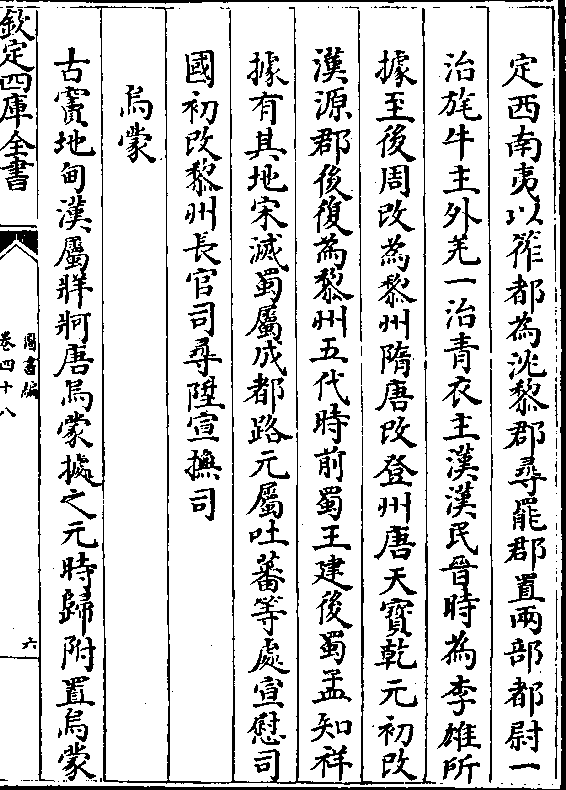 定西南夷以筰都為沈黎郡尋罷郡置兩部都尉一
治旄牛主外羌一治青衣主漢漢民晉時為李雄所
據至後周改為黎州隋唐改登州唐天寶乾元初改
漢源郡後復為黎州五代時前蜀王建後蜀孟知祥
據有其地宋滅蜀屬成都路元屬吐蕃等處宣慰司
國初改黎州長官司尋陞宣撫司
烏蒙
古竇地甸漢屬牂牁唐烏蒙據之元時歸附置烏蒙
欽定四庫全書
圖書編
卷四十八
六